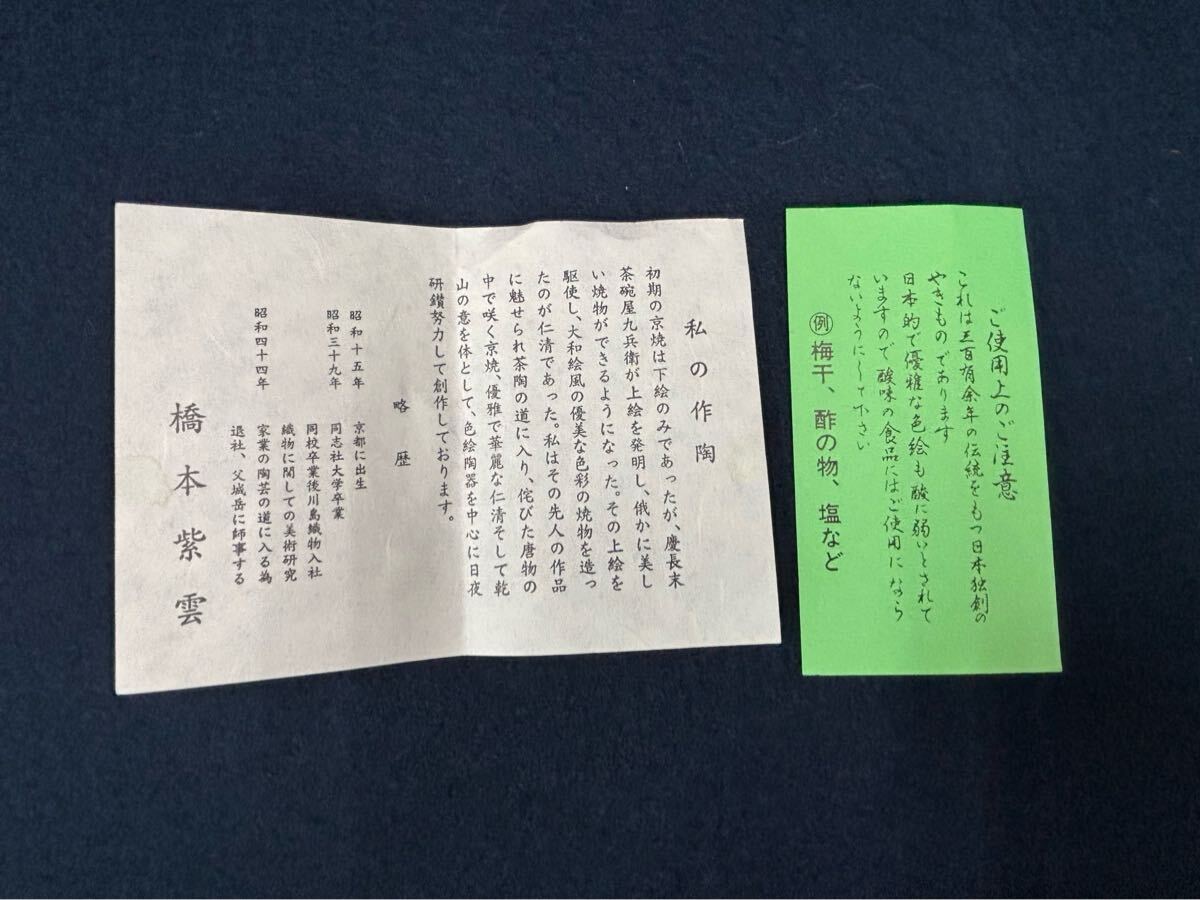 私の作陶
初期の京焼は下絵のみであったが、慶長末
茶碗屋九兵衛が上絵を発明し、俄かに美し
い焼物ができるようになった。その上絵を
駆使し、大和絵風の優美な色彩の焼物を造っ
たのが仁清であった。私はその先人の作品
に魅せられ茶陶の道に入り、侘びた唐物の
中で咲く京焼、優雅で華麗な仁清そして乾
山の意を体として、色絵陶器を中心に日夜
研鑽努力して創作しております。
略歴
昭和十五年 京都に出生
昭和三十九年 同志社大学卒業
同校卒業後川島織物入社
織物に関しての美術研究
昭和四十四年 家業の陶芸の道に入る為
退社、父城岳に師事する
橋本紫雲
ご使用上のご注意
これは三百有余年の伝統をもつ日本独創の
やきものであります
日本的で優雅な色絵も酸に弱いとされて
いますので酸味の食品にはご使用になら
ないようにして下さい
例 梅干、酢の物、塩など